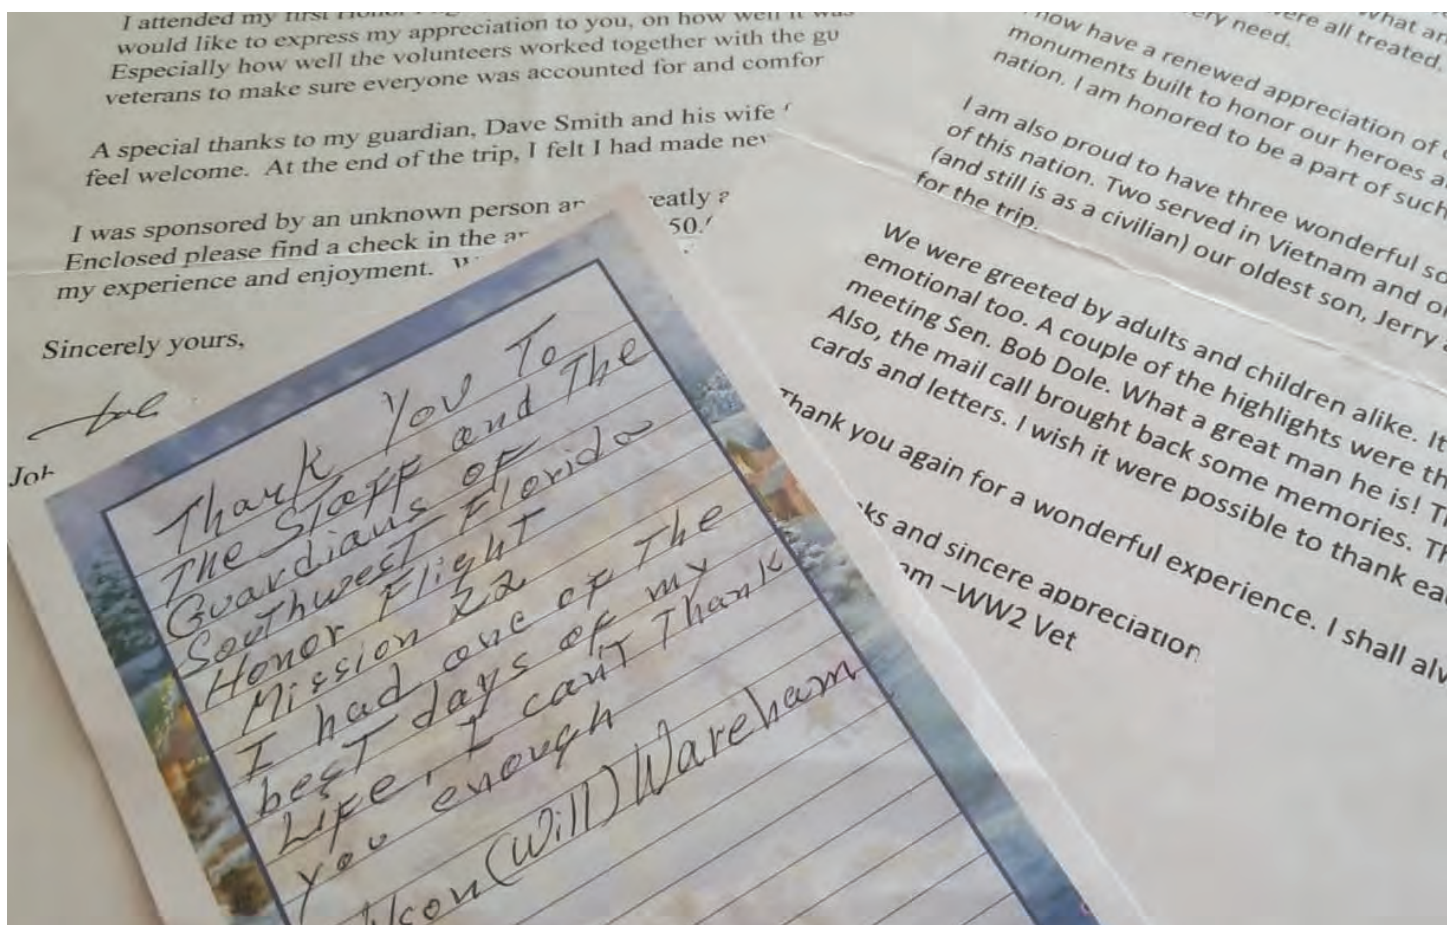 I attended my first Honor
would like to express my appreciation to you, on how well it was
Especially how well the volunteers worked together with the gu
veterans to make sure everyone was accounted for and comfor
A special thanks to my guardian, Dave Smith and his wife
feel welcome. At the end of the trip, I felt I had made
I was sponsored by an unknown person an eatly a
Enclosed please find a check in the 50.
my experience and enjoyment.
Sincerely yours,
Joh
Thank You To
The Staff and The
Guardians of
Southwest Florida
Honor Flight
Mission 22
I had one of The
best days of my
Life, I can't Thank
you enough
(Will) Wareham
ery need.
were all treated. What an
now have a renewed appreciation of
monuments built to honor our heroes a
nation. I am honored to be a part of such
I am also proud to have three wonderful so
of this nation. Two served in Vietnam and
(and still is as a civilian) our oldest son, Jerry
for the trip.
We were greeted by adults and children alike. It
emotional too. A couple of the highlights were th
meeting Sen. Bob Dole. What a great man he is! T
Also, the mail call brought back some memories. Th
cards and letters. I wish it were possible to thank ea
Thank you again for a wonderful experience. I shall alw
ks and sincere appreciation
am –WW2 Vet